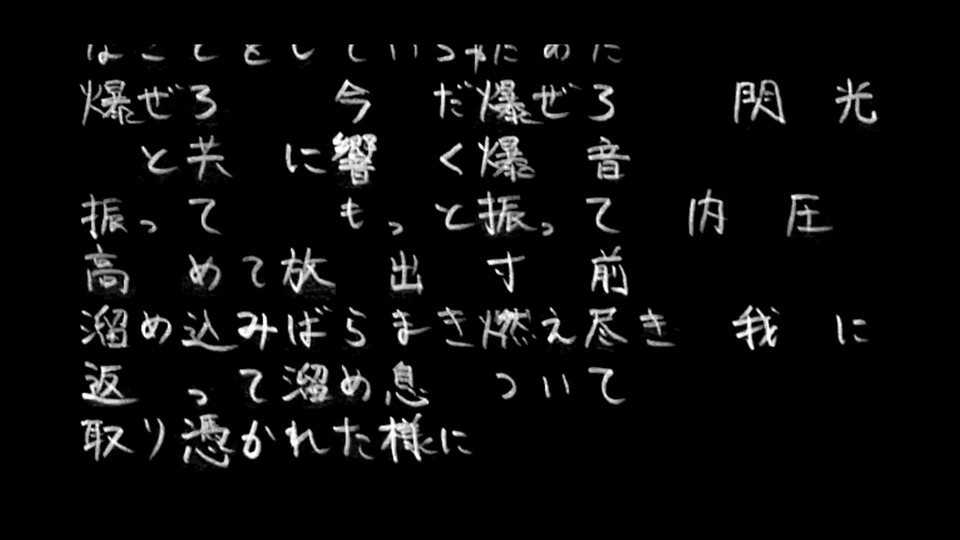 爆ぜろ 今 だ爆ぜろ 閃 光
と共 に響 く爆 音
振って もっと振って 内 圧
高 めて放 出 寸 前
溜め込みばらまき燃え尽き 我 に
返 って溜め息 ついて
取り憑かれた様に